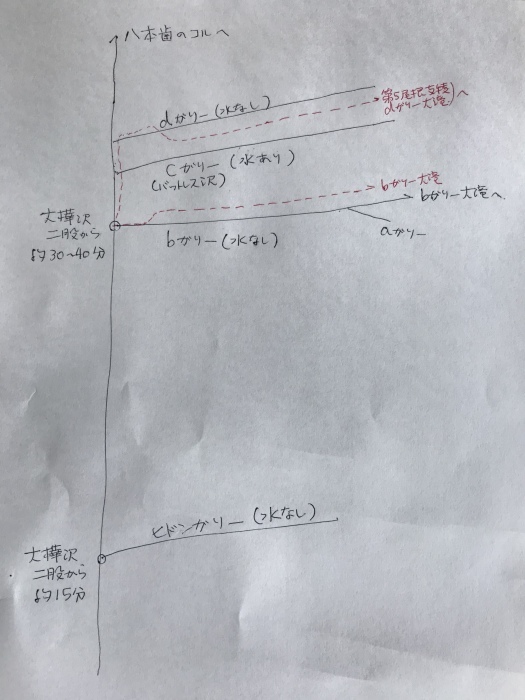 八本歯のコルへ
dガリー(水なし)
第5尾根支稜
dガリー大滝へ
Cガリー(水あり)
(バットレス沢)
bガリー大滝
bガリー大滝へ
大樺沢
二股から
約30〜40分
bガリー(水なし)
aガリー
ヒドンガリー(水なし)
大樺沢
二股から
約15分